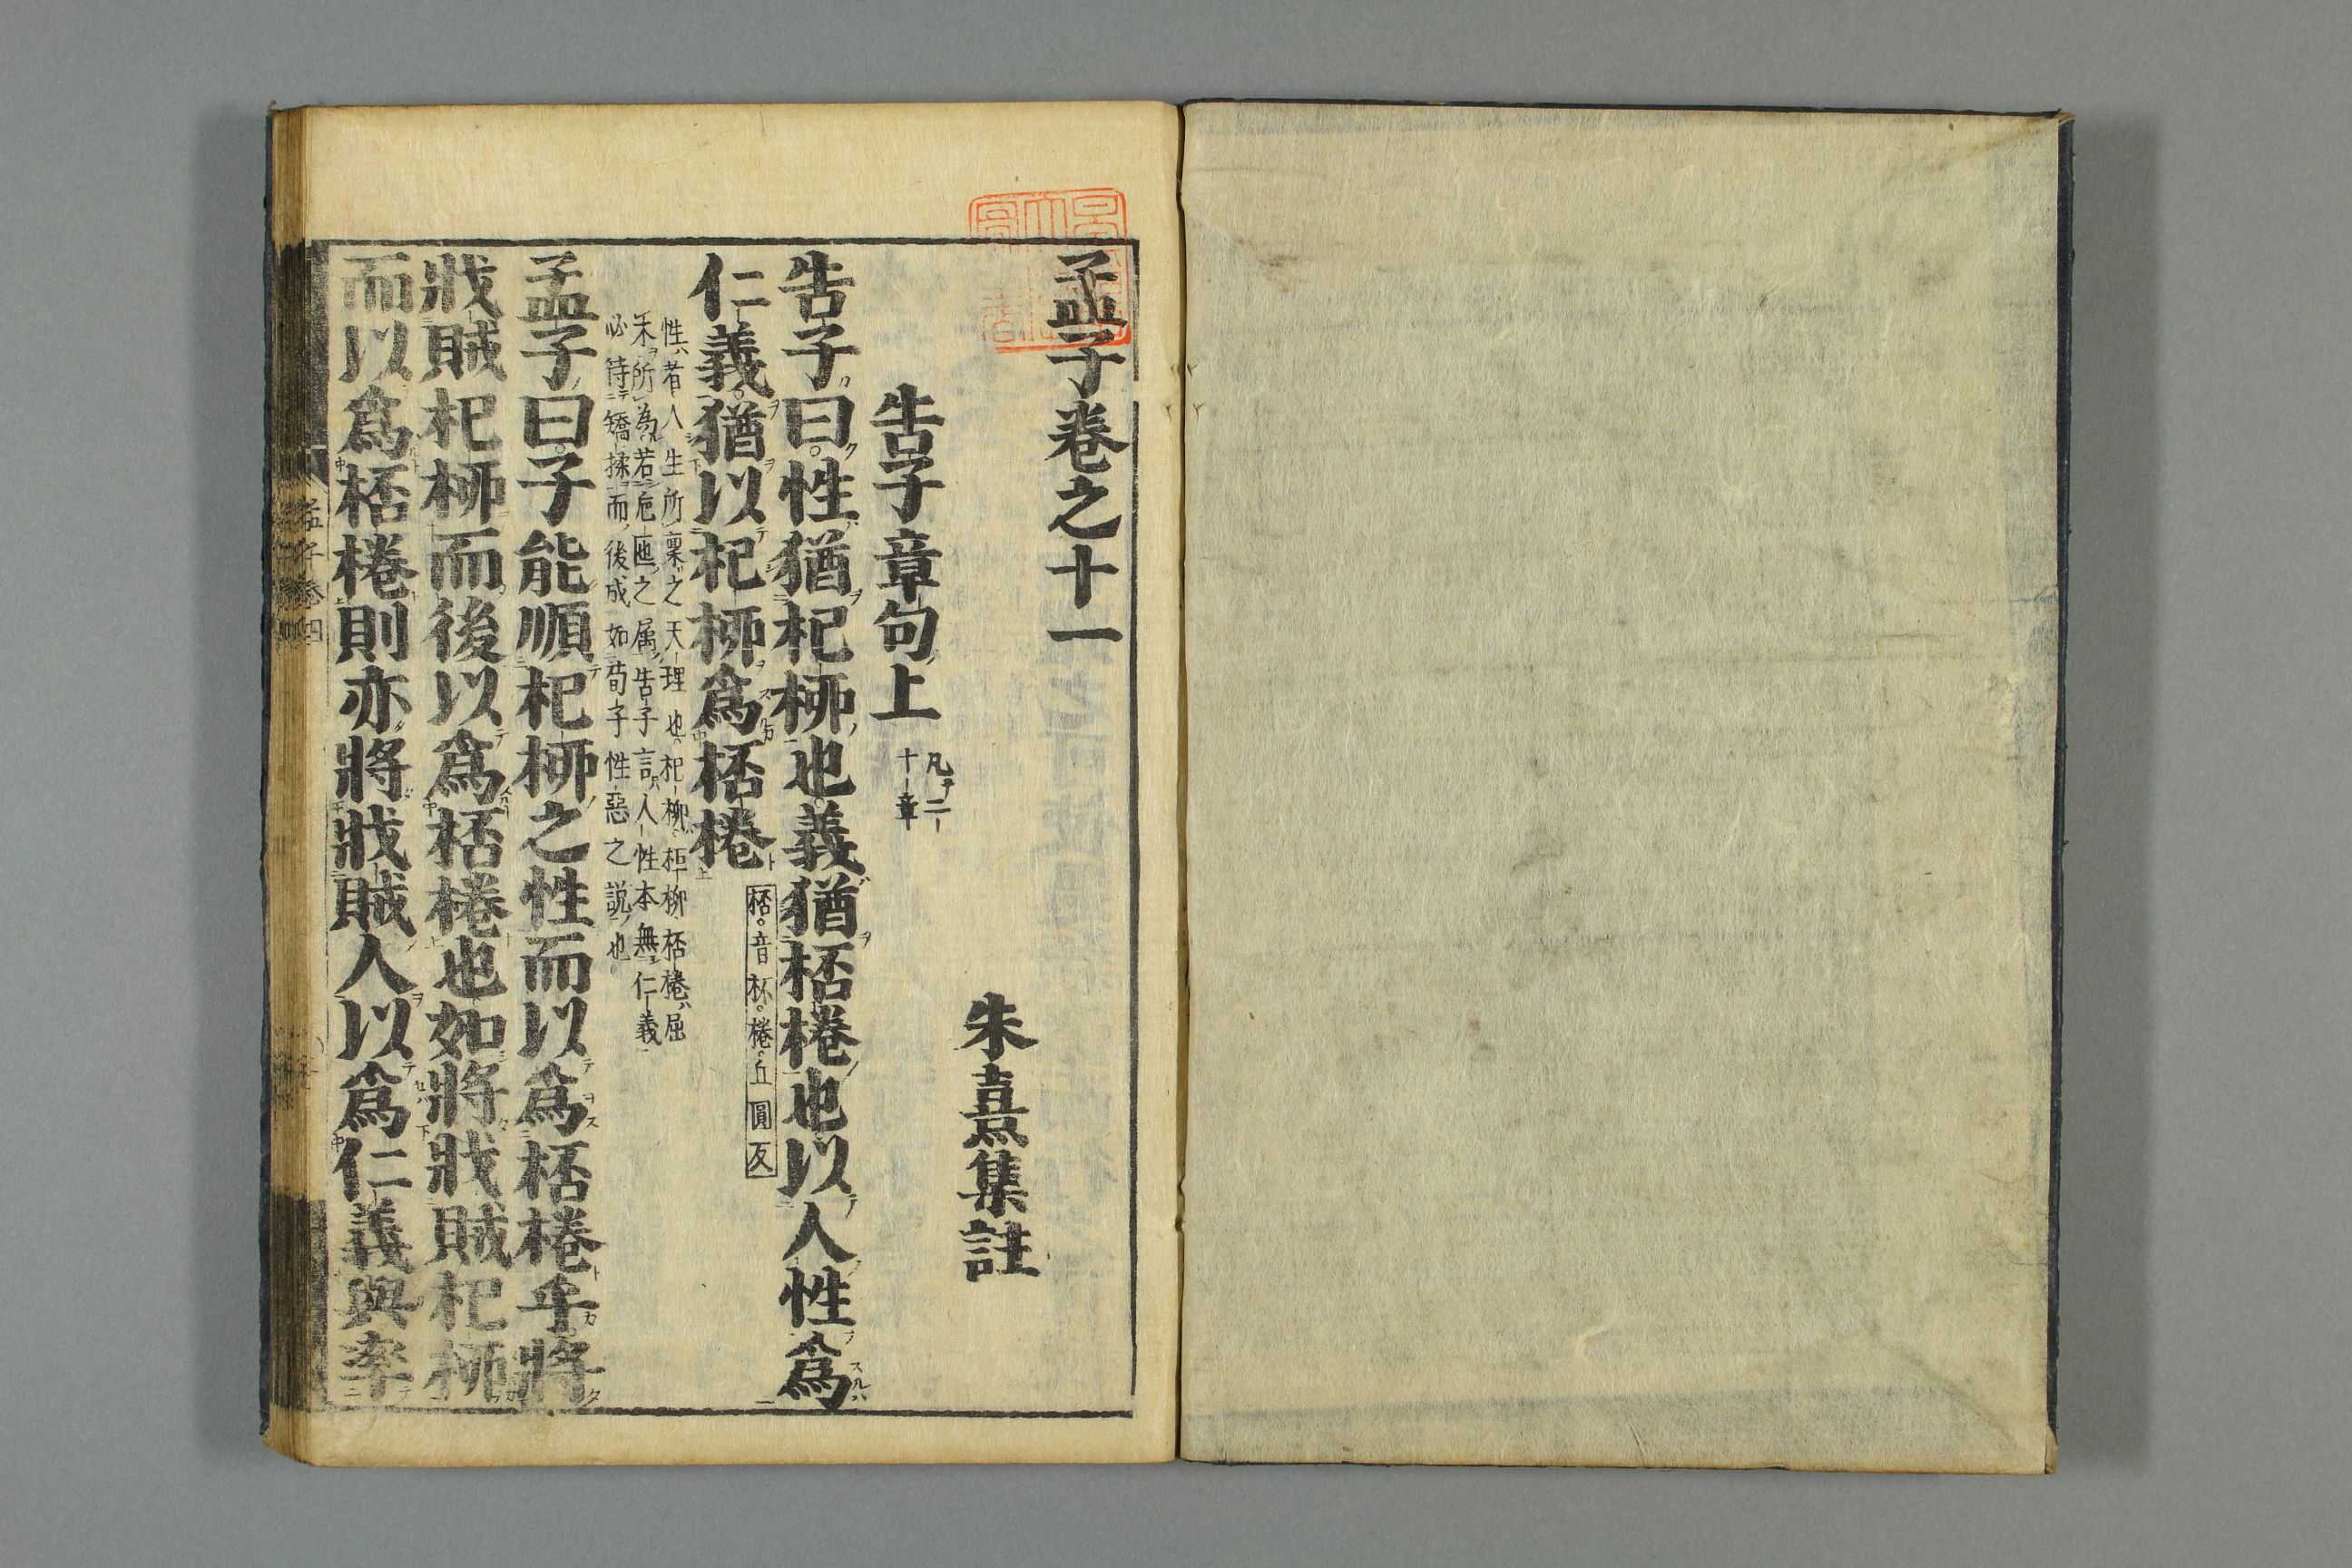 孟子卷之十一
朱熹集註
告子章句上
凡二
十章
告子曰性猶杞柳也義猶桮棬也以人性爲
仁義猶以杞柳爲桮棬
桮音杯棬丘圓反
性者人生所稟之天理也杞柳柜柳桮棬屈
木所為若卮匜之属告子言人性本無仁義
必待矯揉而後成如荀子性惡之説也
孟子曰子能順杞柳之性而以爲桮棬乎將
戕賊杞柳而後以爲桮棬也如將戕賊杞柳
而以爲桮棬則亦將戕賊人以爲仁義與率
孟子卷四